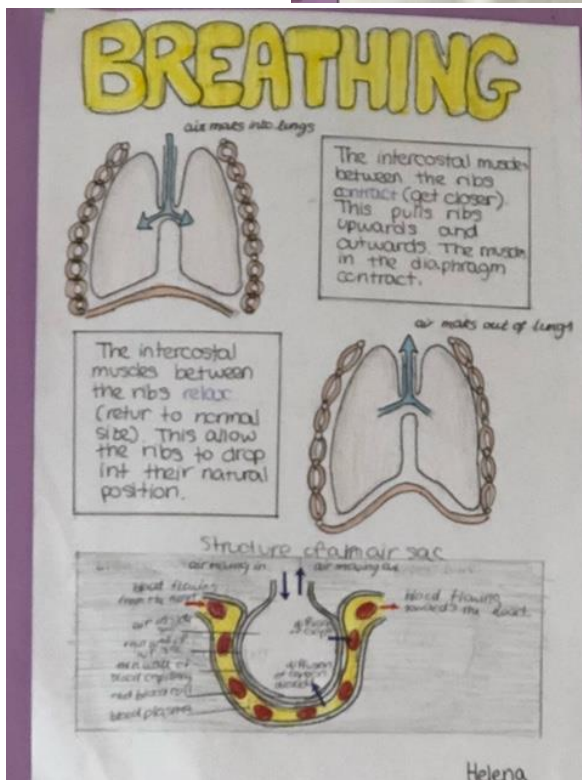 BREATHING
air moves into lungs
The intercostal muscles
between the ribs
contract (get closer).
This pulls ribs
upwards and
outwards. The muscles
in the diaphragm
contract.
air moves out of lungs
The intercostal
muscles between
the ribs relax
(retur to normal
size). This allow
the ribs to drop
int their natural
position.
Structure of an air sac
air moving in
air moving out
blood flowing
from the heart
blood flowing
towards the heart
air inside
thin wall of
diffusion
of oxygen
thin wall of
blood capillary
diffusion
of carbon
dioxide
red blood cell
blood plasma
Helena